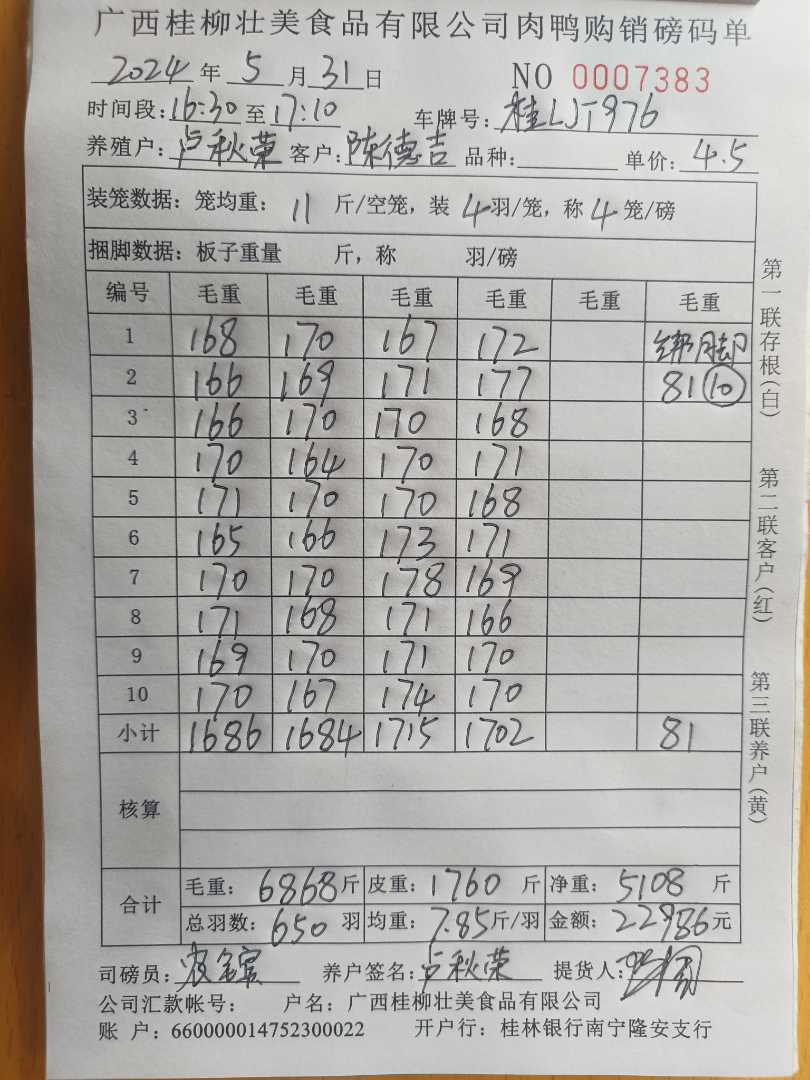 广西桂柳壮美食品有限公司肉鸭购销磅码单
2024 年 5 月 31 日 NO 0007383
时间段: 16:30 至 17:10 车牌号: 桂LJT976
养殖户: 卢秋荣 客户: 陈德吉 品种: 单价: 4.5
装笼数据: 笼均重: 11 斤/空笼, 装 4 羽/笼, 称 4 笼/磅
捆脚数据: 板子重量 斤, 称 羽/磅
编号 毛重 毛重 毛重 毛重 毛重 毛重
1 168 170 167 172 绑脚
2 166 169 171 177 81 10
3 166 170 170 168
4 170 164 170 171
5 171 170 170 168
6 165 166 173 171
7 170 170 178 169
8 171 168 171 166
9 169 170 171 170
10 170 167 174 170
小计 1686 1684 1715 1702 81
核算
合计
毛重: 6868 斤 皮重: 1760 斤 净重: 5108 斤
总羽数: 650 羽 均重: 7.85 斤/羽 金额: 22986 元
司磅员: 养户签名: 卢秋荣 提货人:
公司汇款帐号: 户名: 广西桂柳壮美食品有限公司
账 户: 660000014752300022 开户行: 桂林银行南宁隆安支行
第一联存根(白)
第二联客户(红)
第三联养户(黄)